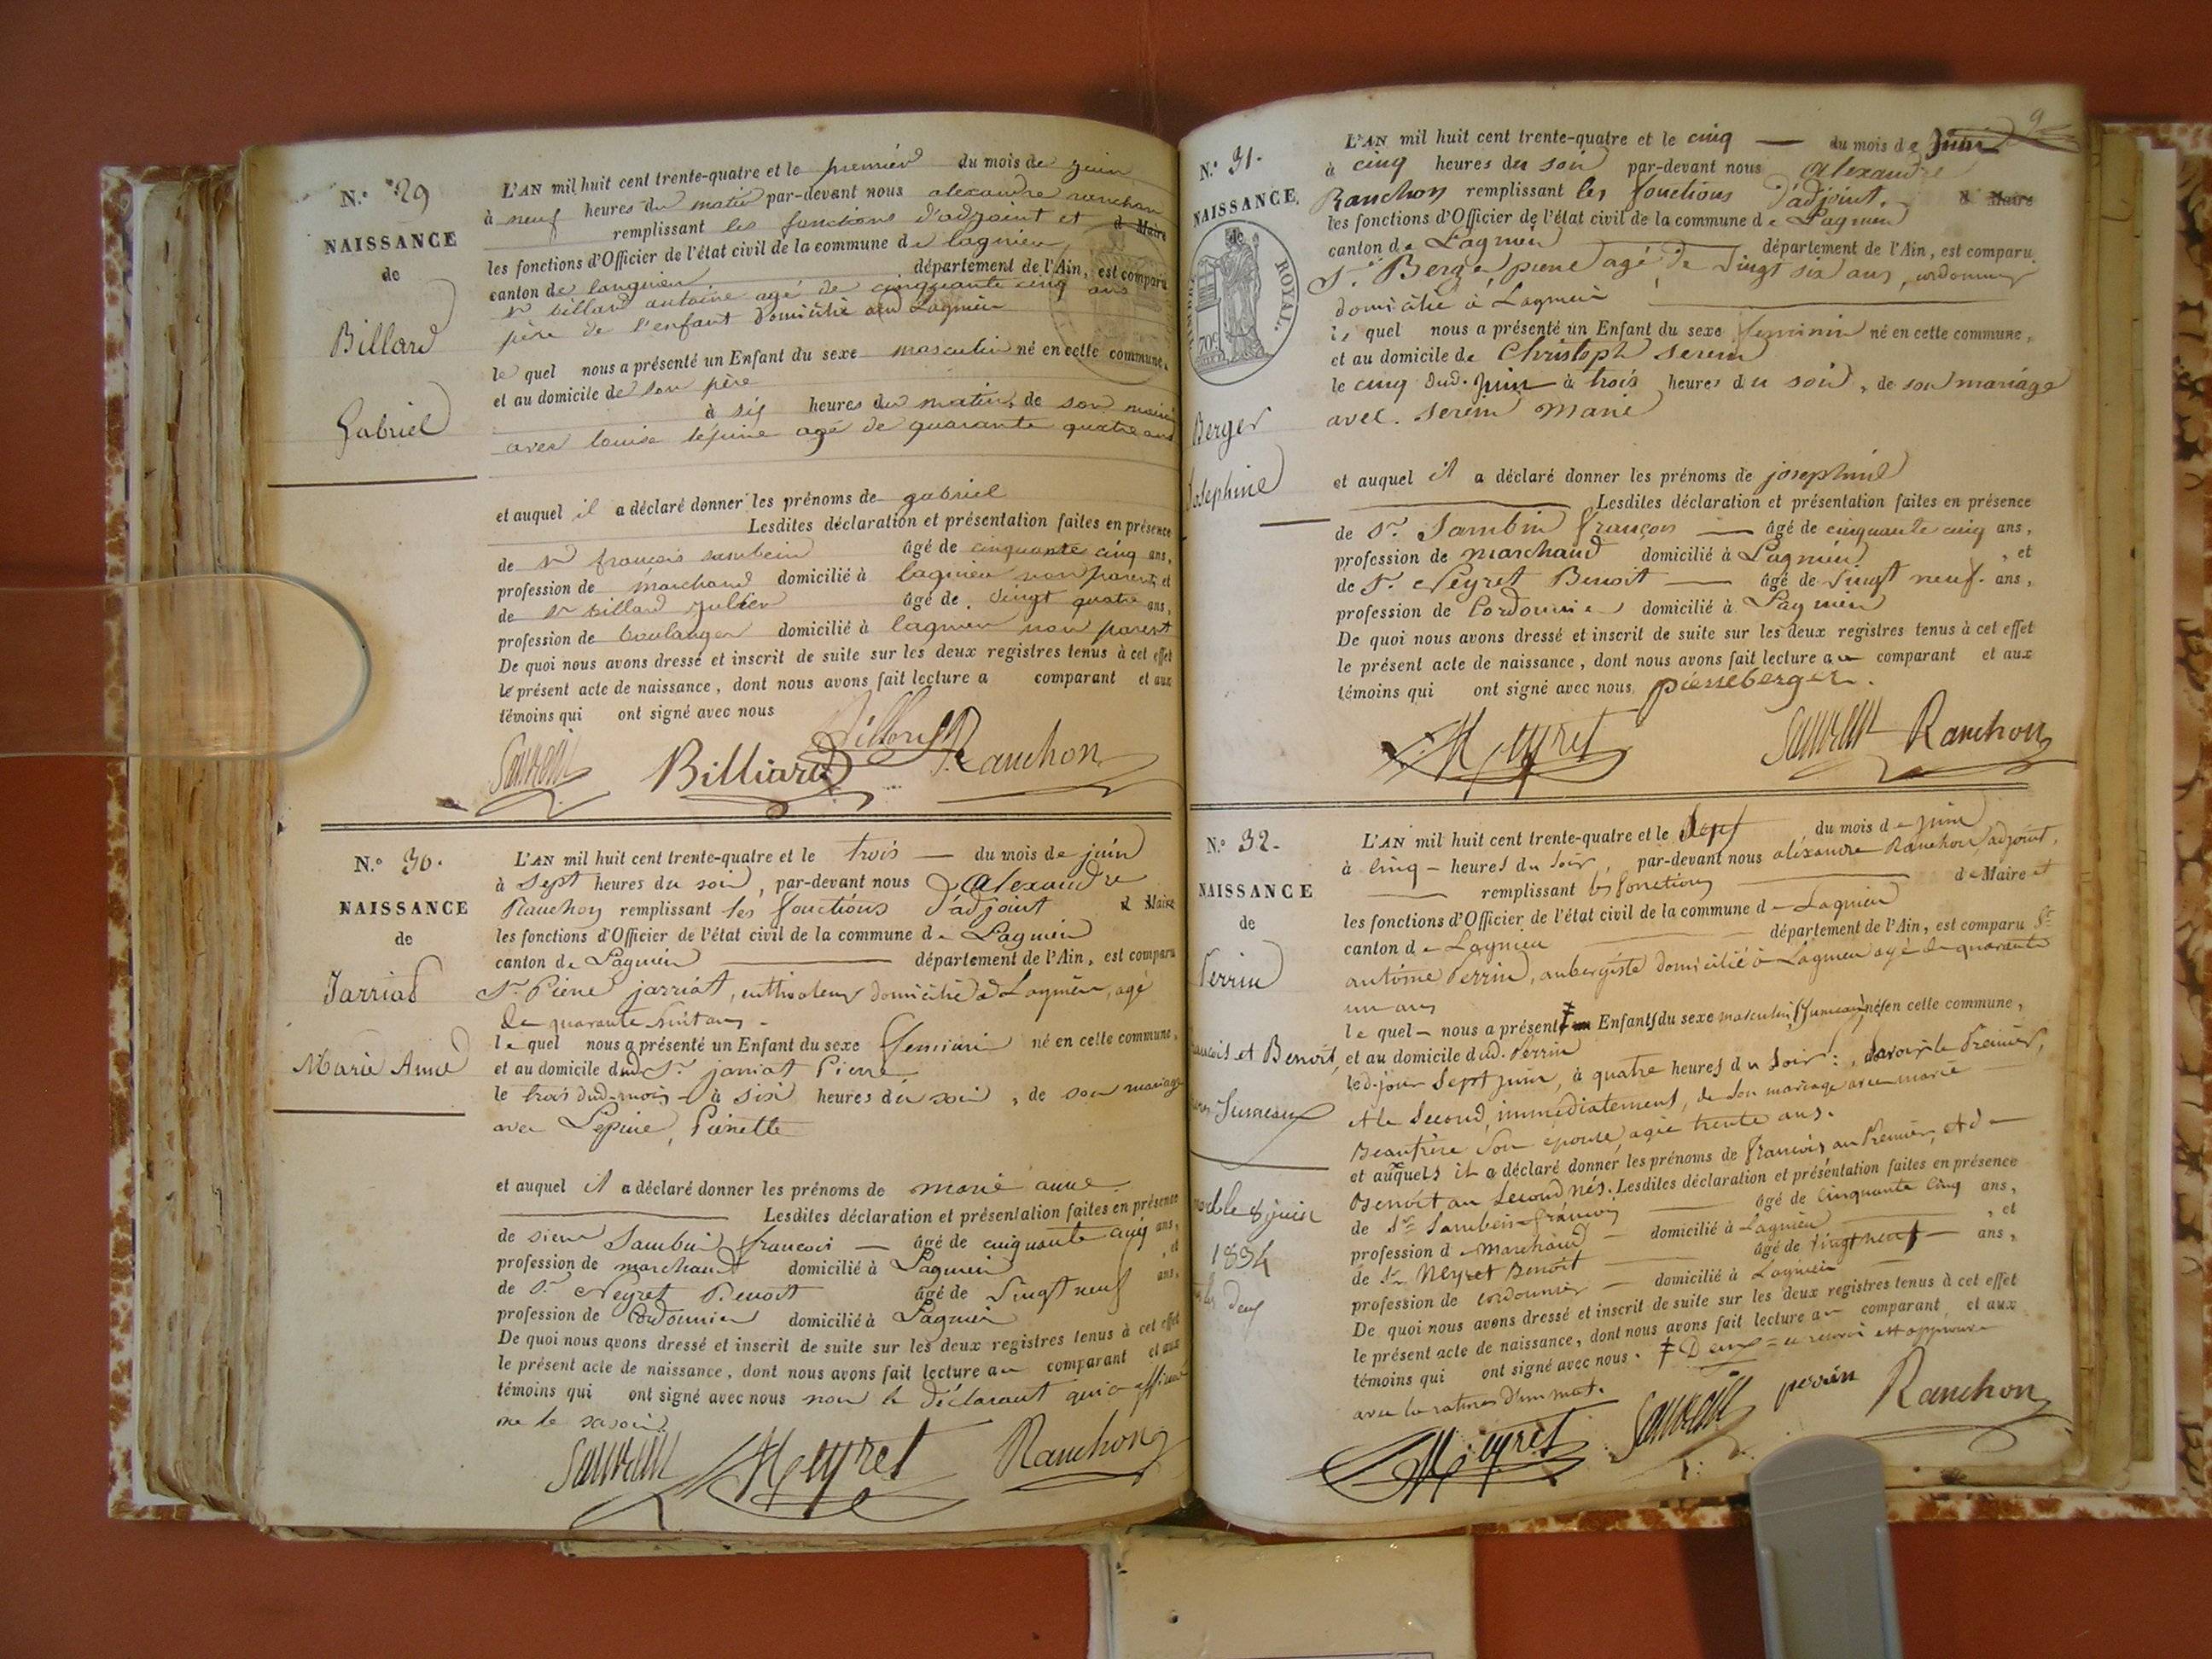 N.o 29
NAISSANCE
de
Billard
Gabriel
L'AN mil huit cent trente-quatre et le premier du mois de juin
à neuf heures du matin par-devant nous alexandre ranchon
remplissant les fonctions d'adjoint et d Maire
les fonctions d'Officier de l'état civil de la commune de lagnieu
canton de langnieu département de l'Ain, est comparu
Sr billard antoine agé de cinquante cinq ans
père de l'enfant domicilié aud Lagnieu
le quel nous a présenté un Enfant du sexe masculin né en cette commune,
et au domicile de son père
à six heures du matin, de son mariage
avec louise lépine agé de quarante quatre ans
et auquel il a déclaré donner les prénoms de gabriel
Lesdites déclaration et présentation faites en présence
de Sr francois sambein âgé de cinquante cinq ans,
profession de marchand domicilié à lagnieu non parent, et
de Sr billard Julien âgé de vingt quatre ans,
profession de boulanger domicilié à lagnieu non parent
De quoi nous avons dressé et inscrit de suite sur les deux registres tenus à cet effet
le présent acte de naissance, dont nous avons fait lecture a comparant et aux
témoins qui ont signé avec nous
Billard
Billiard Ranchon
N.o 30.
NAISSANCE
de
Jarriat
Marie Anne
L'AN mil huit cent trente-quatre et le trois — du mois de juin
à sept heures du soir, par-devant nous Alexandre
Ranchon remplissant les fonctions d'adjoint d Maire
les fonctions d'Officier de l'état civil de la commune de Lagnieu
canton de Lagnieu département de l'Ain, est comparu
Sr Pierre jarriat, cultivateur domicilié à Lagnieu, agé
de quarante huit ans.
le quel nous a présenté un Enfant du sexe féminin né en cette commune,
et au domicile dud Sr jarriat Pierre
le trois dud. mois à six heures du soir, de son mariage
avec Lepine, Pierrette
et auquel il a déclaré donner les prénoms de marie anne
Lesdites déclaration et présentation faites en présence
de sieur Sambin francois — âgé de cinquante cinq ans,
profession de marchand domicilié à Lagnieu, et
de Sr Neyret Benoit âgé de vingt neuf ans,
profession de Cordonnier domicilié à Lagnieu
De quoi nous avons dressé et inscrit de suite sur les deux registres tenus à cet effet
le présent acte de naissance, dont nous avons fait lecture au comparant et aux
témoins qui ont signé avec nous non le déclarant qui a affirmé
ne le savoir
Neyret Ranchon
9
N.o 31.
NAISSANCE,
de
ROYAL.
Berger
Josephine
L'AN mil huit cent trente-quatre et le cinq — du mois de Juin
à cinq heures du soir par-devant nous Alexandre
Ranchon remplissant les fonctions d'adjoint. d Maire
les fonctions d'Officier de l'état civil de la commune de Lagnieu
canton de Lagnieu département de l'Ain, est comparu
Sr Berger pierre agé de vingt six ans, cordonnier
domicilié à Lagnieu
le quel nous a présenté un Enfant du sexe féminin né en cette commune,
et au domicile de Christoph serein
le cinq dud. juin à trois heures du soir, de son mariage
avec. serein marie
et auquel il a déclaré donner les prénoms de josephine
Lesdites déclaration et présentation faites en présence
de Sr. Sambin françois — âgé de cinquante cinq ans,
profession de marchand domicilié à Lagnieu, et
de Sr. Neyret Benoit — âgé de vingt neuf. ans,
profession de Cordonnier domicilié à Lagnieu
De quoi nous avons dressé et inscrit de suite sur les deux registres tenus à cet effet
le présent acte de naissance, dont nous avons fait lecture au comparant et aux
témoins qui ont signé avec nous. pierre berger.
Neyret Ranchon
N.o 32.
NAISSANCE
de
Perrin
François et Benoit,
Jumeaux
8 juin
1834
deux
L'AN mil huit cent trente-quatre et le Sept du mois de juin
à cinq — heures du soir, par-devant nous alexandre Ranchon, adjoint,
remplissant les fonctions de Maire et
les fonctions d'Officier de l'état civil de la commune de Lagnieu
canton de Lagnieu département de l'Ain, est comparu Sr
antoine Perrin, aubergiste domicilié à Lagnieu agé de quarante
un ans
le quel — nous a présenté ‡ un Enfants du sexe masculin, (Jumeaux) nés en cette commune,
et au domicile dud. Perrin
led. jour Sept juin, à quatre heures du soir : savoir le Premier,
et le Second, immédiatement, de son mariage avec marie
Beaufrère son épouse, agée trente ans.
et auxquels il a déclaré donner les prénoms de François au Premier, et de
Benoit au Second nés. Lesdites déclaration et présentation faites en présence
de Sr. Sambein françois âgé de Cinquante cinq ans,
profession de Marchand — domicilié à Lagnieu, et
de Sr Neyret Benoit âgé de vingt neuf — ans,
profession de cordonnier — domicilié à Lagnieu
De quoi nous avons dressé et inscrit de suite sur les deux registres tenus à cet effet
le présent acte de naissance, dont nous avons fait lecture au comparant et aux
témoins qui ont signé avec nous. ‡ Deux = ce renvoi est approuvé
avec la rature d'un mot.
Neyret perrin Ranchon